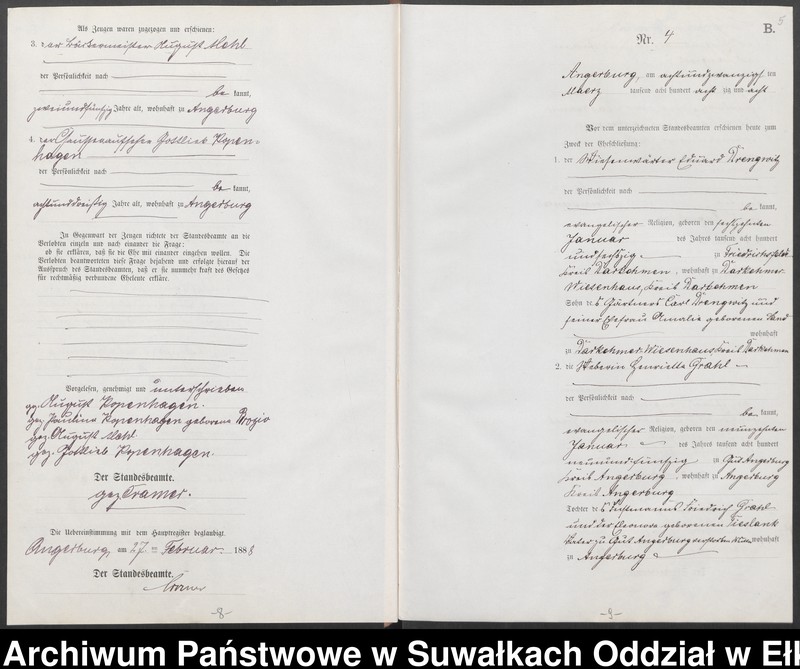 Als Zeugen waren zugezogen und erschienen:
3. der August Mehl
der Persönlichkeit nach
be kannt,
zweiundfünfzig Jahre alt, wohnhaft zu Angerburg
4. der Chausseeaufseher Gottlieb Kopen-
hagen
der Persönlichkeit nach
be kannt,
achtunddreißig Jahre alt, wohnhaft zu Angerburg
In Gegenwart der Zeugen richtete der Standesbeamte an die
Verlobten einzeln und nach einander die Frage:
ob sie erklären, daß sie die Ehe mit einander eingehen wollen. Die
Verlobten beantworteten diese Frage bejahend und erfolgte hierauf der
Ausspruch des Standesbeamten, daß er sie nunmehr kraft des Gesetzes
für rechtmäßig verbundene Eheleute erkläre.
Vorgelesen, genehmigt und unterschrieben
gez. August Kopenhagen.
gez. Pauline Kopenhagen geborene
gez. August Mehl.
gez. Gottlieb Kopenhagen.
Der Standesbeamte.
gez. Cramer.
Die Uebereinstimmung mit dem Hauptregister beglaubigt.
Angerburg, am 27 ten Februar 1888
Der Standesbeamte.
Cramer
-8-
B.
5
Nr. 4
Angerburg, am achtundzwanzigsten
Maerz tausend acht hundert acht zig und acht
Vor dem unterzeichneten Standesbeamten erschienen heute zum
Zweck der Eheschließung:
1. der Wiesenwärter Eduard Drengwitz
der Persönlichkeit nach
be kannt,
evangelischer Religion, geboren den sechszehnten
Januar des Jahres tausend acht hundert
undsechszig zu
Kreis Darkehmen, wohnhaft zu Darkehmer
Wiesenhaus, Kreis Darkehmen
Sohn des Gärtners Carl Drengwitz und
seiner Ehefrau Amalie geborenen
wohnhaft
zu Darkehmer Wiesenhaus, Kreis Darkehmen
2. die Henriette Grahl
der Persönlichkeit nach
be kannt,
evangelischer Religion, geboren den neunzehnten
Januar des Jahres tausend acht hundert
neunundfünfzig zu Gut Angerburg
Kreis Angerburg, wohnhaft zu Angerburg
Kreis Angerburg
Tochter des Friedrich Grahl
und der Eleonore geborenen
zu Gut Angerburg verstorben wohnhaft
zu Angerburg
-9-
Archiwum Państwowe w Suwałkach Oddział w Eł